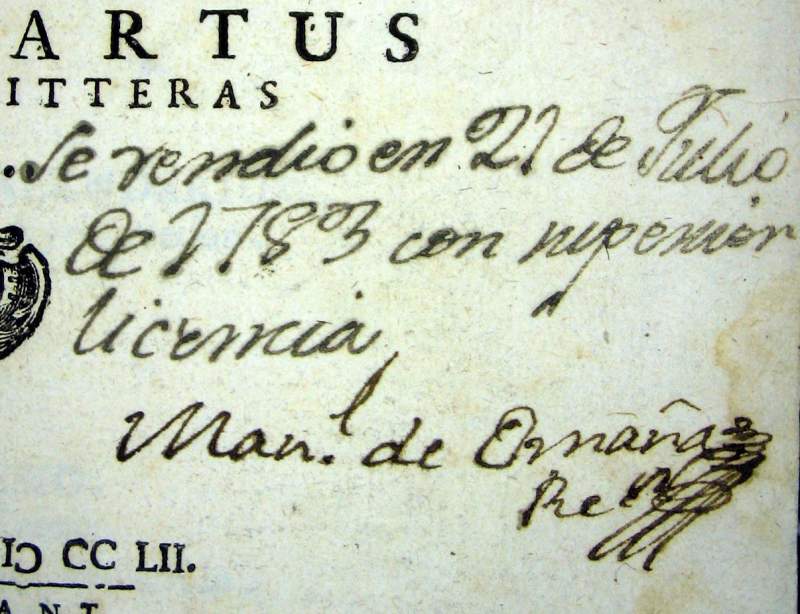 ARTUS
ITTERAS
. Se vendio en 21 de Julio
de 1783 con superior
licencia
Man.l de Omaña
Re
IↃ CC LII.
ANT